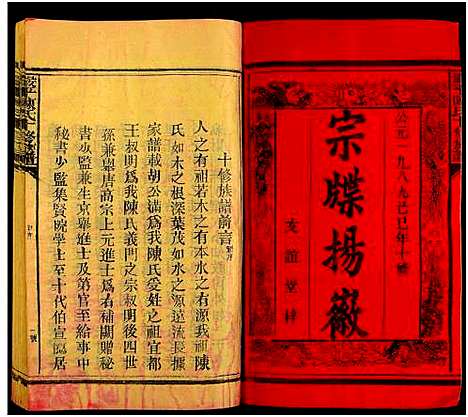 公元一九八九己巳年十修
宗牒揚徽
友誼堂梓
十修族譜前言
人之有祖若木之有本水之有源我祖陳
氏如木之根深葉茂如水之源遠流長據
家譜載胡公滿為我陳氏受姓之祖宜都
王叔明為我陳氏義門之宗叔明後四世
孫兼唐高宗上元進士為右補闕贈秘
書少監兼生京舉進士及第官至給事中
秘書少監集賢院學士至十代伯宣隱居